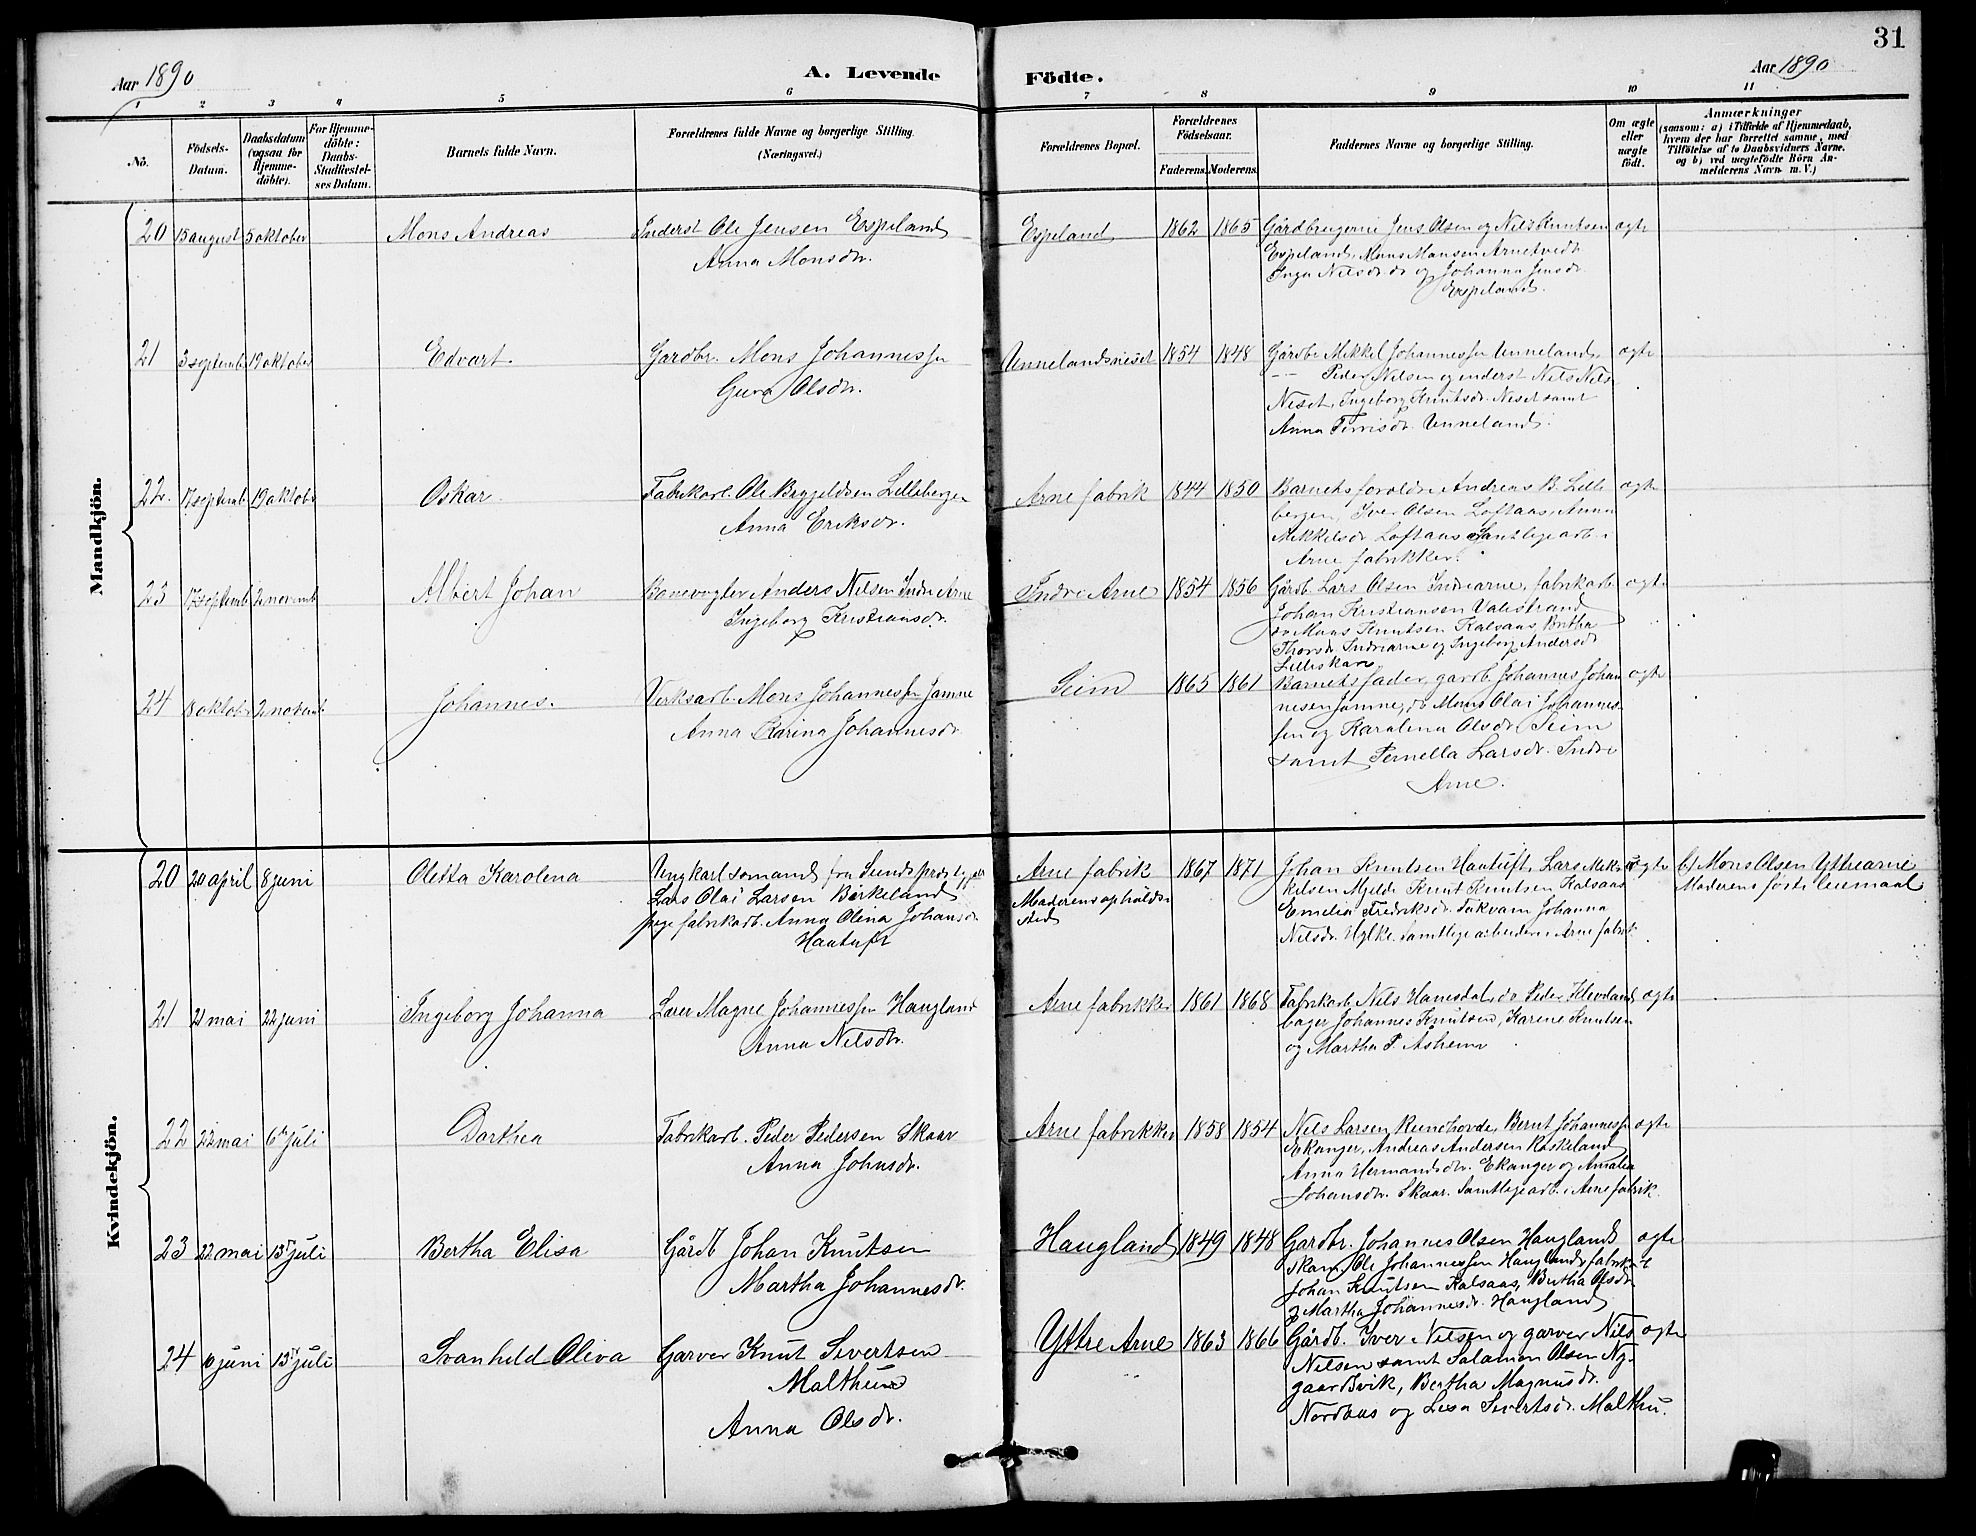 31
Aar 1890
A. Levende Födte.
Aar 1890
1 2 3 4 5 6 7 8 9 10 11
No.
Födsels-
Datum.
Daabsdatum
(ogsaa for
Hjemme-
döbte).
For Hjemme-
döbte:
Daabs-
Stadfæstel-
ses Datum.
Barnets fulde Navn.
Forældrenes fulde Navne og borgerlige Stilling.
(Næringsvei.)
Forældrenes Bopæl.
Forældrenes
Födselsaar.
Faderens. Moderens.
Faddernes Navne og borgerlige Stilling.
Om ægte
eller
uægte
født.
Anmærkninger
(saasom: a) i Tilfælde af Hjemmedaab,
hvem der har forrettet samme, med
Tilföielse af to Daabsvidners Navne.
og b) ved uægtefödte Börn An-
melderens Navn m. V.)
Mandkjön.
20 15 august 5 oktober Mons Andreas
Inderst Ole Jensen Espeland
Anna Monsdr.
Espeland 1862 1865
Gårdbrugerne Jens Olsen og Nils Knutsen
Espeland, Mons Monsen Arnetvedt
Inga Nilsdr do og Johanna Jensdr.
Espeland.
ægte
21 3 septemb 19 oktober Edvart.
Gardbr. Mons Johannessen
Guro Olsdr.
Unnelandsneset 1854 1848
Gårdbr Mikkel Johannessen Unneland,
-- Peder Nilsen og inderst Nils Nils
Neset, Ingeborg Knutsdr. Neset samt
Anna Unneland.
ægte
22. 17 septemb 19 oktobr Oskar
Fabrikarb. Ole Lillebergen
Anna Eriksdr.
Arne fabrik 1844 1850
Barnets foreldre Andreas B. Lille
bergen, Iver Olsen Loftaas, Anna
Mikkelsdr Loftaas Samtlige arb. i
Arne fabrikker.
ægte
23 17 septemb 2 novemb Albert Johan
Banevogter Anders Nilsen Indre Arne
Ingeborg Kristiansdr.
Indre Arne 1854 1856
Gårdb. Lars Olsen Indrearne, fabrikarb
Johan Kristiansen Valestrand
do Mons Knutsen Kalsaas, Britha
Thorsdr Indrearne og Ingeborg Andersdr
Lilleskare
ægte
24 8 oktober 2 novemb. Johannes.
Verksarb. Mons Johannessen Jamne
Anna Karina Johannesdr
Seim 1865 1861
Barnets fader, gardb. Johannes Johan
nesen Jamne, do Mons Olai Johannes-
sen og Karolina Olsdr. Seim
samt Pernella Larsdr. Indre
Arne.
ægte
Kvindekjön.
20 20 april 8 juni Oletta Karolena
Ungkarl sømand fra Sunds
Lars Olai Larsen Birkeland
pige fabrikarb. Anna Olina Johansdr.
Hautuft
Arne fabrik
Moderens opholds-
sted
1867 1871
Johan Knutsen Hautuft, Lars Mik-
kelsen Mjelde Knut Knutsen Kalsaas
Emelia Fredriksdr. Takvam Johanna
Nilsdr. Hylke. samtlige arbeidere i Arne fabrik
uægte
b) Mons Olsen Yttrearne
Moderens første leiemaal
21 21 mai 22 juni Ingeborg Johanna
Lærer Magne Johannessen Haugland
Anna Nilsdr.
Arne fabrikker 1861 1868
Fabrikarb Nils Hanesdal, do Peder Kleveland
bager Johannes Knutsen, Karene Knutsen
og Martha P. Asheim
ægte
22 22 mai 6 juli Dorthea
Fabrikarb. Peder Pedersen Skaar
Anna Johnsdr.
Arne fabrikker 1858 1854
Nils Larsen Rundhovde, Bernt Johannessen
Ekanger, Andreas Andersen Røskeland
Anna Hermandsdr. Ekanger og Amalia
Johansdr. Skaar. Samtlige arb. i Arne fabrik.
ægte
23 22 mai 13 juli Bertha Elisa
Gårdb Johan Knutsen
Martha Johannesdr.
Haugland 1849 1848
Gardbr. Johannes Olsen Haugland
skom. Ole Johannessen Haugland, fabrikarb
Johan Knutsen Kalsaas, Bertha Olsdr
og Martha Johannesdr. Haugland
ægte
24 10 juni 13 juli Svanhild Oliva
Garver Knut Sivertsen
Malthun
Anna Olsdr.
Yttre Arne 1863 1866
Gårdb. Iver Nilsen og garver Nils
Nilsen samt Salamon Olsen Ny-
gaardsvik, Bertha Magnusdr.
Nordaas og Lisa Sivertsdr. Malthu.
ægte